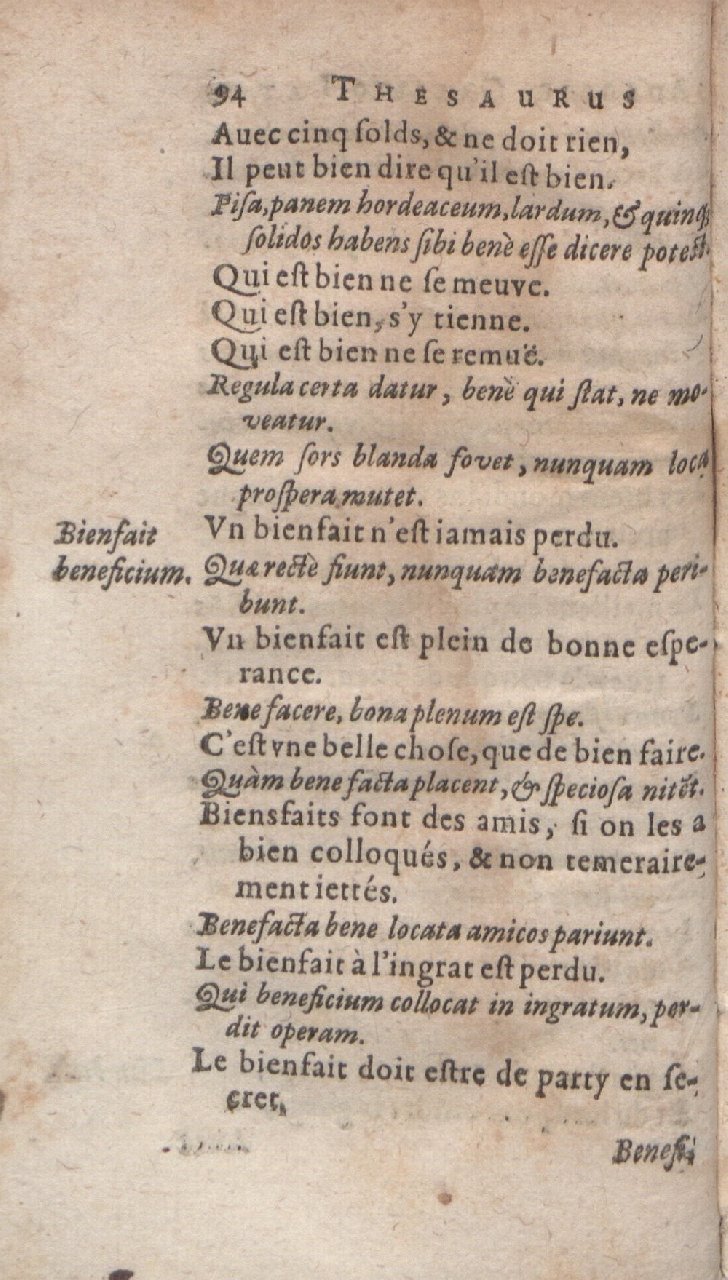 94 THESAURUS
Auec cinq ſolds, & ne doit rien,
Il peut bien dire qu'il eſt bien.
Piſa, panem hordeaceum, lardum, & quinq;
ſolidos habens ſibi benè eſſe dicere potect.
Qui eſt bien ne ſe meuve.
Qui eſt bien, s'y tienne.
Qui eſt bien ne ſe remuë.
Regula certa datur, benè qui ſtat, ne mo-
veatur.
Quem ſors blanda fovet, nunquam loca
proſpera mutet.
Bienfait
beneficium.
Vn bienfait n'eſt iamais perdu.
Quæ rectè fiunt, nunquam benefacta peri-
bunt.
Vn bienfait eſt plein de bonne eſpe-
rance.
Bene facere, bona plenum eſt ſpe.
C'eſt vne belle choſe, que de bien faire.
Quàm bene facta placent, & ſpecioſa nitẽt.
Biensfaits font des amis, ſi on les a
bien colloqués, & non temeraire-
ment iettés.
Benefacta bene locata amicos pariunt.
Le bienfait à l'ingrat eſt perdu.
Qui beneficium collocat in ingratum, per-
dit operam.
Le bienfait doit eſtre de party en ſe-
cret,
Benefi-